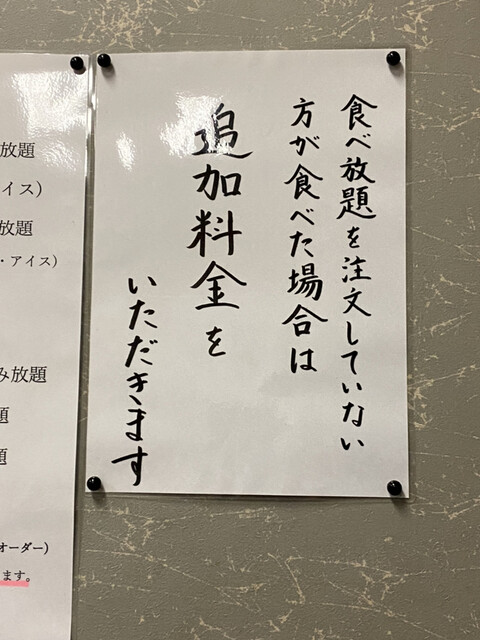 食べ放題を注文していない
方が食べた場合は
追加料金を
いただきます
放題
イス）
放題
・アイス）
み放題
題
題
オーダー）
ます。